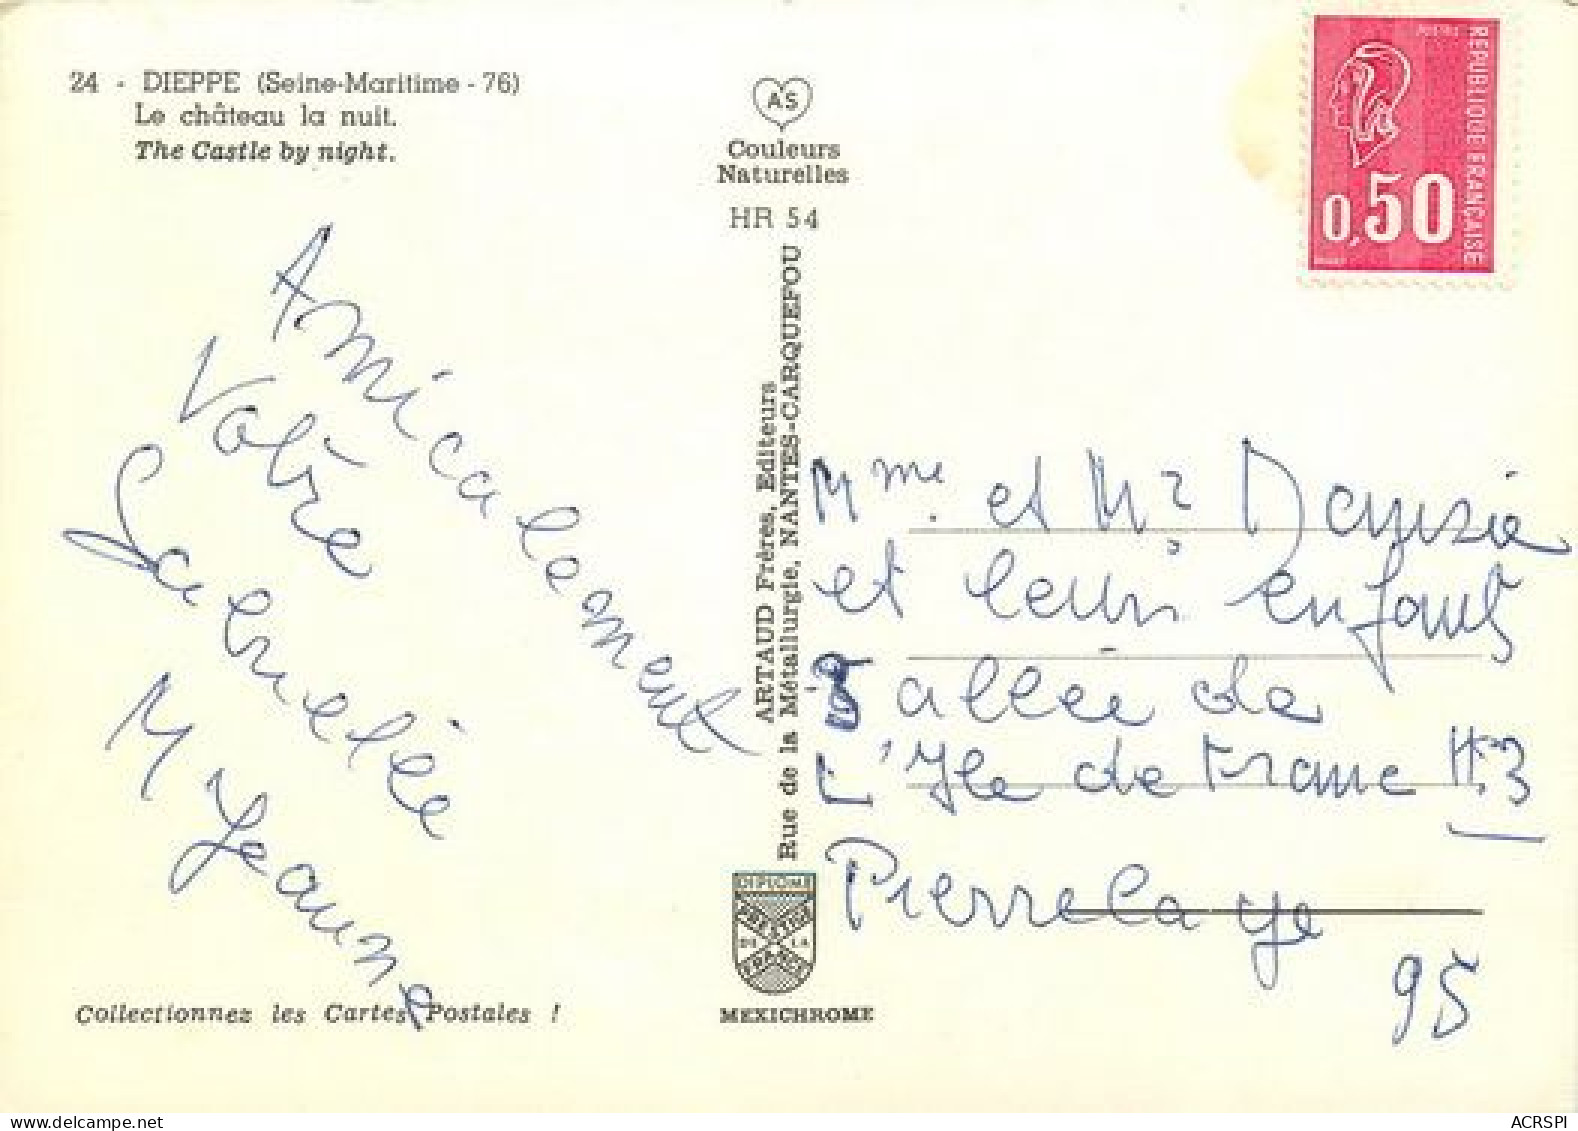 24 - DIEPPE (Seine-Maritime - 76)
Le château la nuit.
The Castle by night.
Amicalement
Votre
Gabrielle
M Jeanne
Collectionnez les Cartes Postales !
AS
Couleurs
Naturelles
HR 54
ARTAUD Frères, Editeurs
Rue de la Métallurgie, NANTES-CARQUEFOU
DIPLOME
PRESTIGE
DE LA
FRANCE
MEXICHROME
POSTES
REPUBLIQUE FRANÇAISE
0,50
Mme. et Mr
et leurs enfants
allée de
L'Ile de France H.3
Pierrelaye
95
delcampe.net
ACRSPI